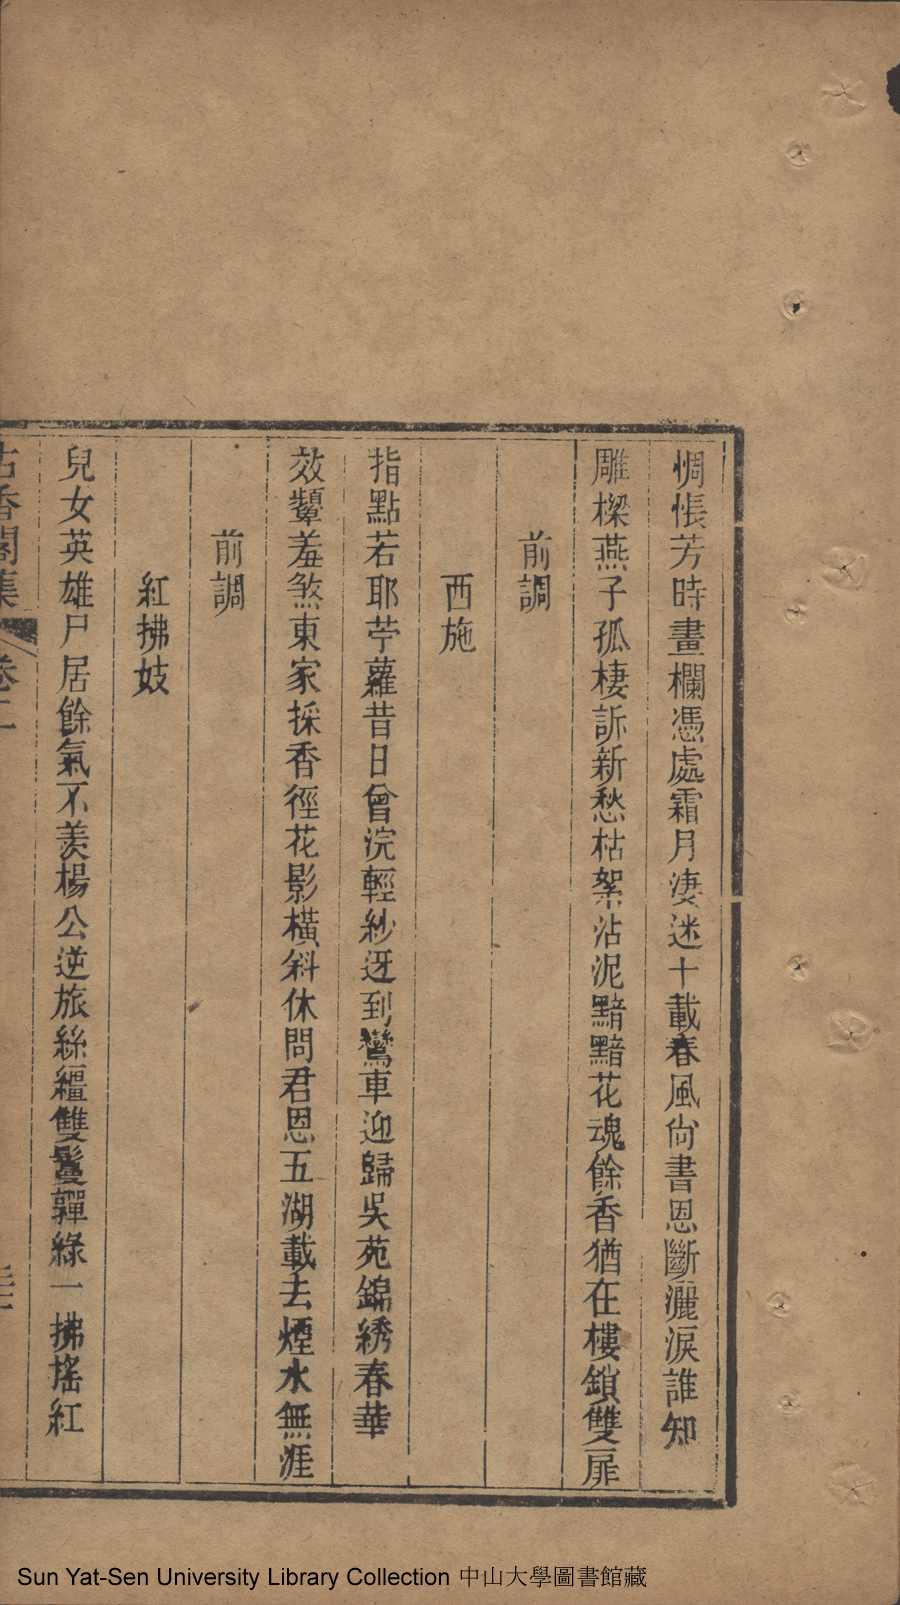 惆悵芳時畫欄憑處霜月淒迷十載春風尙書恩斷灑淚誰知
雕樑燕子孤棲訴新愁枯絮沾泥黯黯花魂餘香猶在樓鎖雙扉
前調
西施
指點若耶苧蘿昔日曾浣輕紗迓到鸞車迎歸吳苑錦綉春華
效顰羞煞東家採香徑花影橫斜休問君恩五湖載去煙水無涯
前調
紅拂妓
兒女英雄尸居餘氣不羨楊公逆旅絲繮雙鬟嚲綠一拂搖紅
古香閣集 卷二
Sun Yat-Sen University Library Collection 中山大學圖書館藏